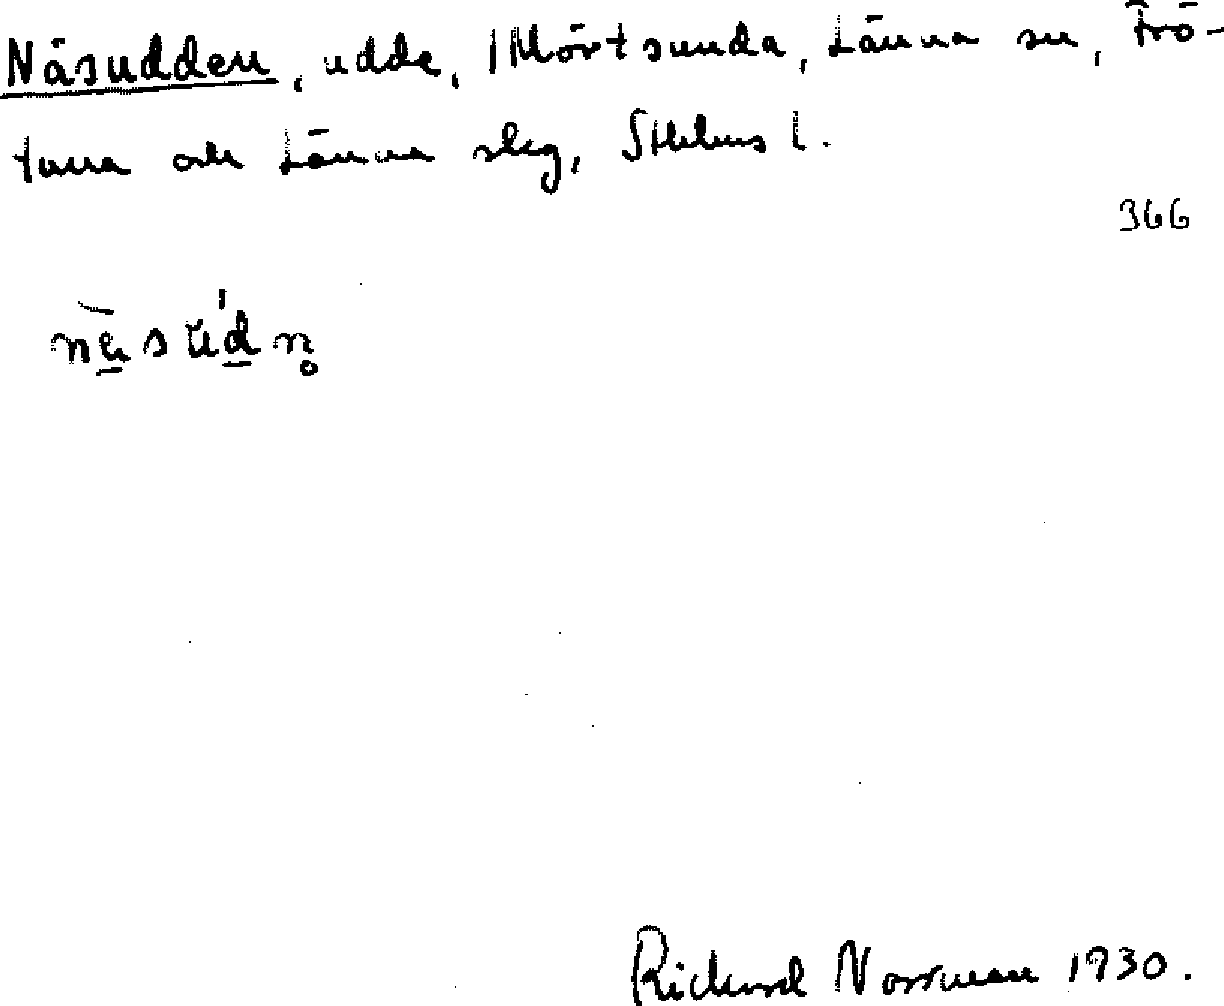 Näsudden, udde, Mörtsunda, Länna sn, Frö-
tuna och Länna skg, Sthlms l.
366
Richard Norrman 1930.